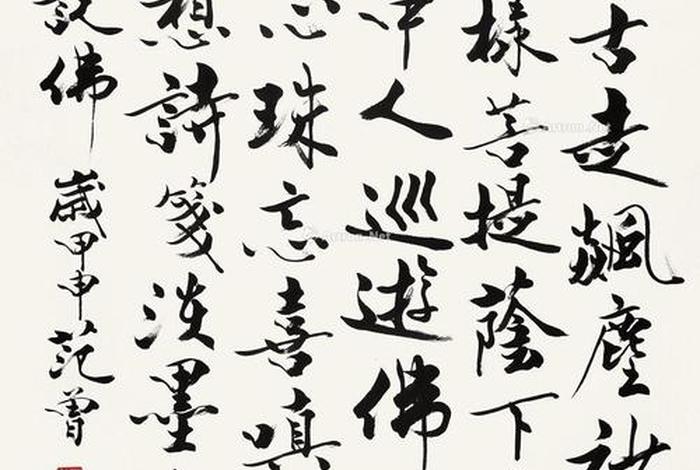 古走飆塵
樣菩提蔭下
中人巡遊佛
心珠忘喜嗔
想詩箋淡墨
說佛 歲甲申范曾